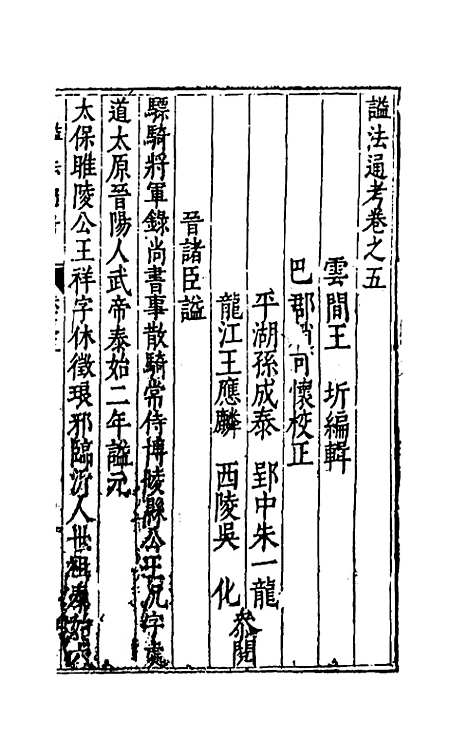 諡法通考卷之五
雲間王 圻編輯
巴郡 可懷校正
平湖孫成泰 郢中朱一龍
龍江王應麟 西陵吳 化
叅閱
晉諸臣諡
驃騎將軍錄尚書事散騎常侍博陵縣公王沉字處
道太原晉陽人武帝泰始二年諡元
太保睢陵公王祥字休徵琅邪臨沂人世祖泰始